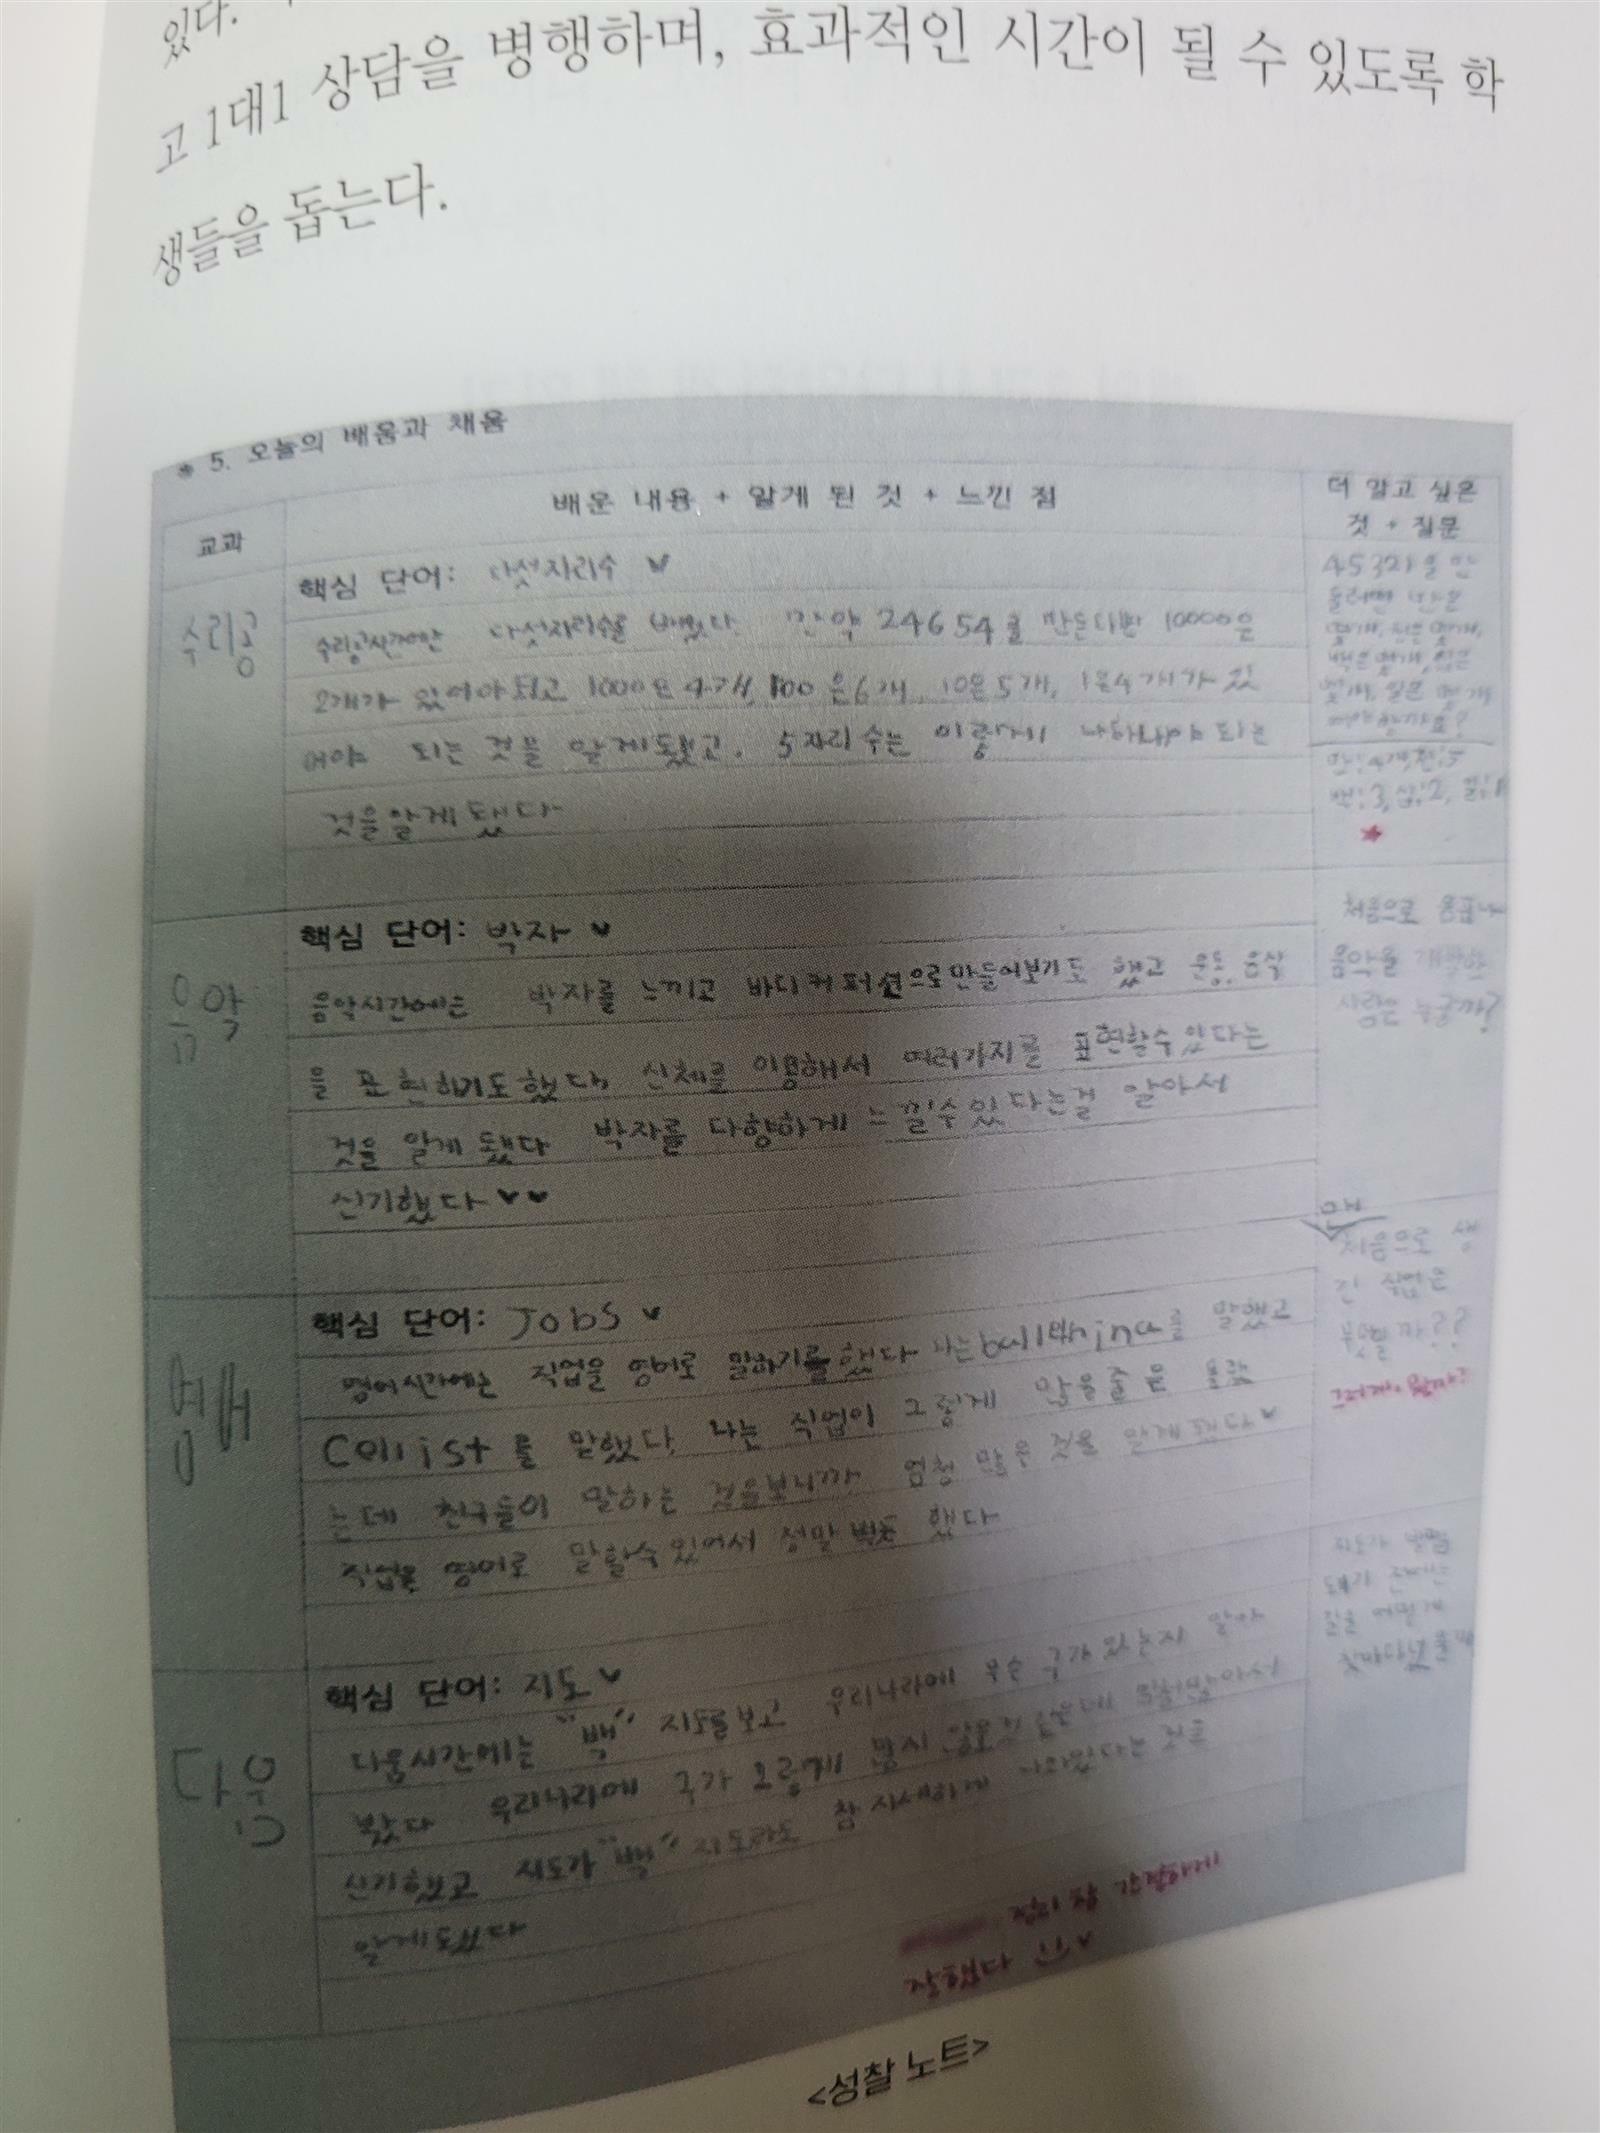 있다.
고 1대1 상담을 병행하며, 효과적인 시간이 될 수 있도록 학
생들을 돕는다.
* 5. 오늘의 배움과 채움
교과
배운 내용 + 알게 된 것 + 느낀 점
더 알고 싶은
것 + 질문
수리공
핵심 단어: 다섯자리수
수리공시간에는 다섯자리수를 배웠다. 만약 24654를 만든다면 10000은
2개가 있어야되고 1000은 4개, 100은 6개, 10은 5개, 1은 4개가 있
어야 되는 것을 알게됐고, 5자리 수는 이렇게 나타내야 되는
것을 알게 됐다
45321을 만
들려면 만은
몇개, 천은 몇개,
백은 몇개, 십은
몇개, 일은 몇개
만:4개, 천:5
백:3, 십:2, 일:1
음악
핵심 단어: 박자
음악시간에는 박자를 느끼고 바디퍼커션으로 만들어보기도 했고 운동, 음식
을 표현하기도 했다 신체를 이용해서 여러가지를 표현할수 있다는
것을 알게 됐다 박자를 다향하게 느낄수 있다는걸 알아서
신기했다
처음으로 음표나
음악을 개발한
사람은 누굴까?
영배
핵심 단어: Jobs
영어시간에는 직업을 영어로 말하기를 했다 나는 를 말했고
Cellist를 말했다. 나는 직업이 그렇게 많을줄은 몰랐
는데 친구들이 말하는 것을보니까 엄청 많은 것을 알게 됐다
직업을 영어로 말할수 있어서 정말 뿌듯 했다
처음으로 생
긴 직업은
무엇일까??
다움
핵심 단어: 지도
다움시간에는 "백" 지도를 보고 우리나라에 무슨 구가 있는지 알아
봤다 우리나라에 구가 이렇게
신기했고 지도가 "백" 지도라도 참 자세하게
알게되었다
지도가 발명
되기 전에는
길을 어떻게
찾아다녔을까
참 잘했다
<성찰 노트>